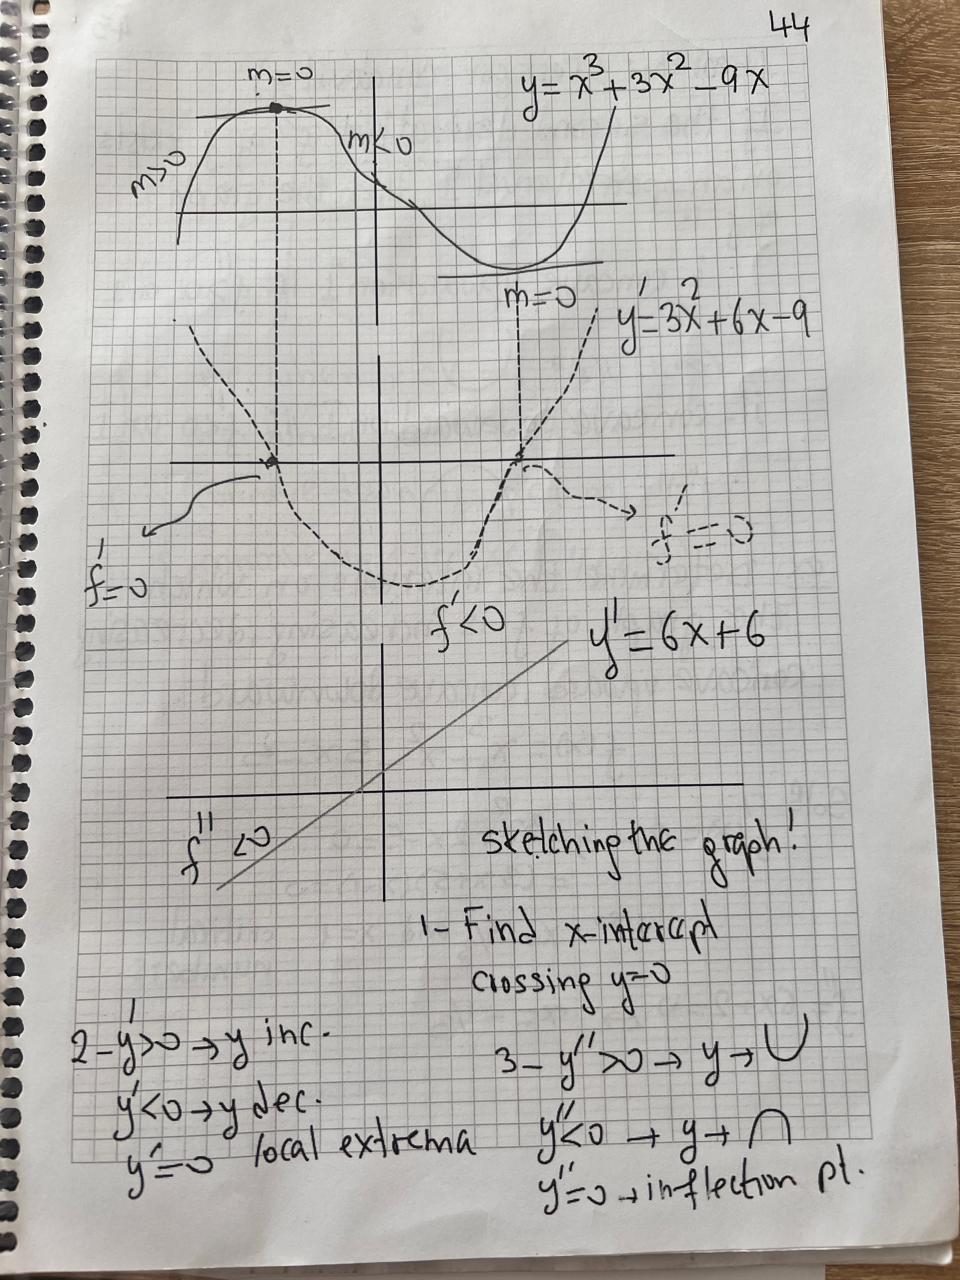 44
m=0
y=x³+3x²-9x
m>0
m<0
m=0
y'=3x²+6x-9
f'=0
f'=0
f'<0
y''=6x+6
f''<0
sketching the graph!
1- Find x-intercept
crossing y=0
2- y'>0→y inc.
y'<0→y dec.
y'=0 local extrema
3- y''>0→y→∪
y''<0→y→∩
y''=0→inflection pt.